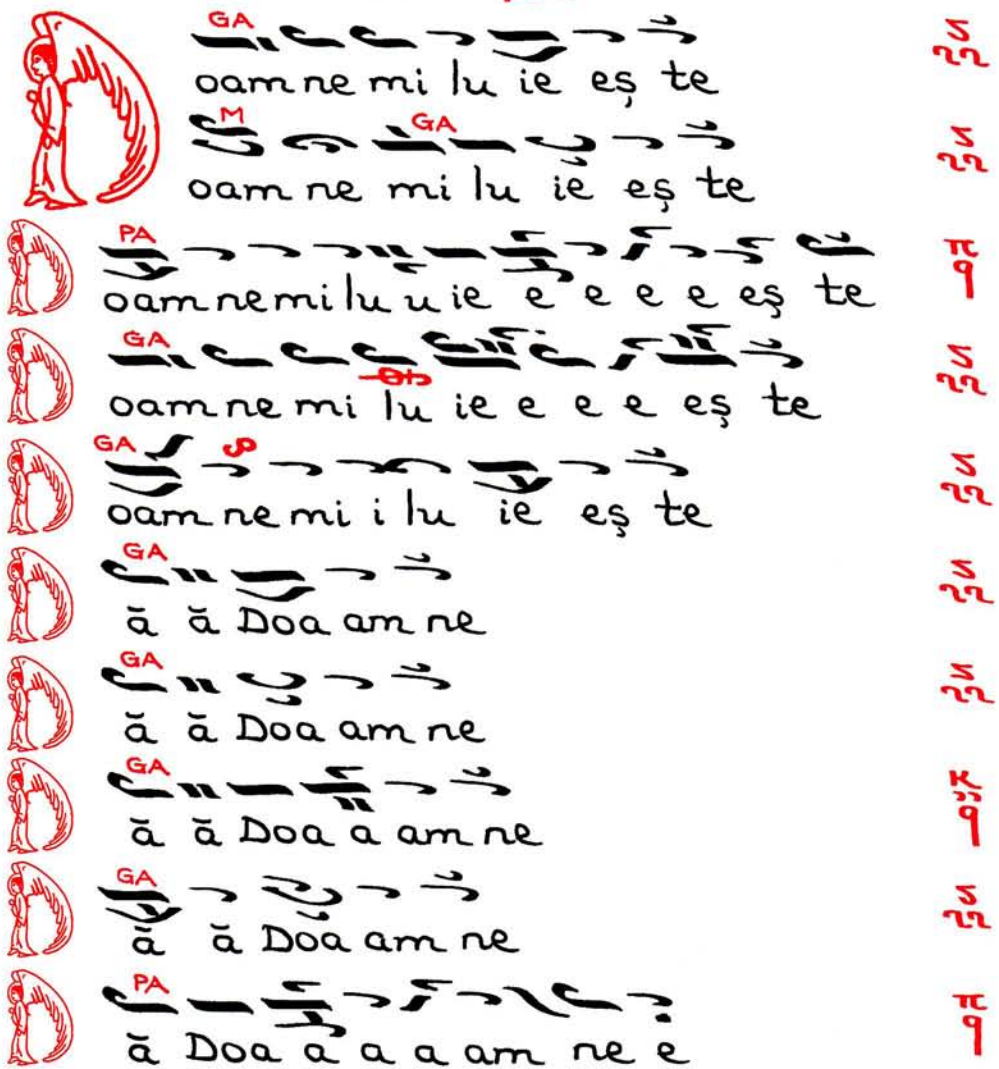 GA
Doam ne mi lu ie eș te
M GA
oam ne mi lu ie eș te
PA
Doam ne mi lu u ie e e e e eș te
GA
Doam ne mi lu ie e e e eș te
GA
Doam ne mi i lu ie eș te
GA
Dă ă Doa am ne
GA
Dă ă Doa am ne
GA
Dă ă Doa a am ne
GA
Dă ă Doa am ne
PA
Dă Doa a a a am ne e